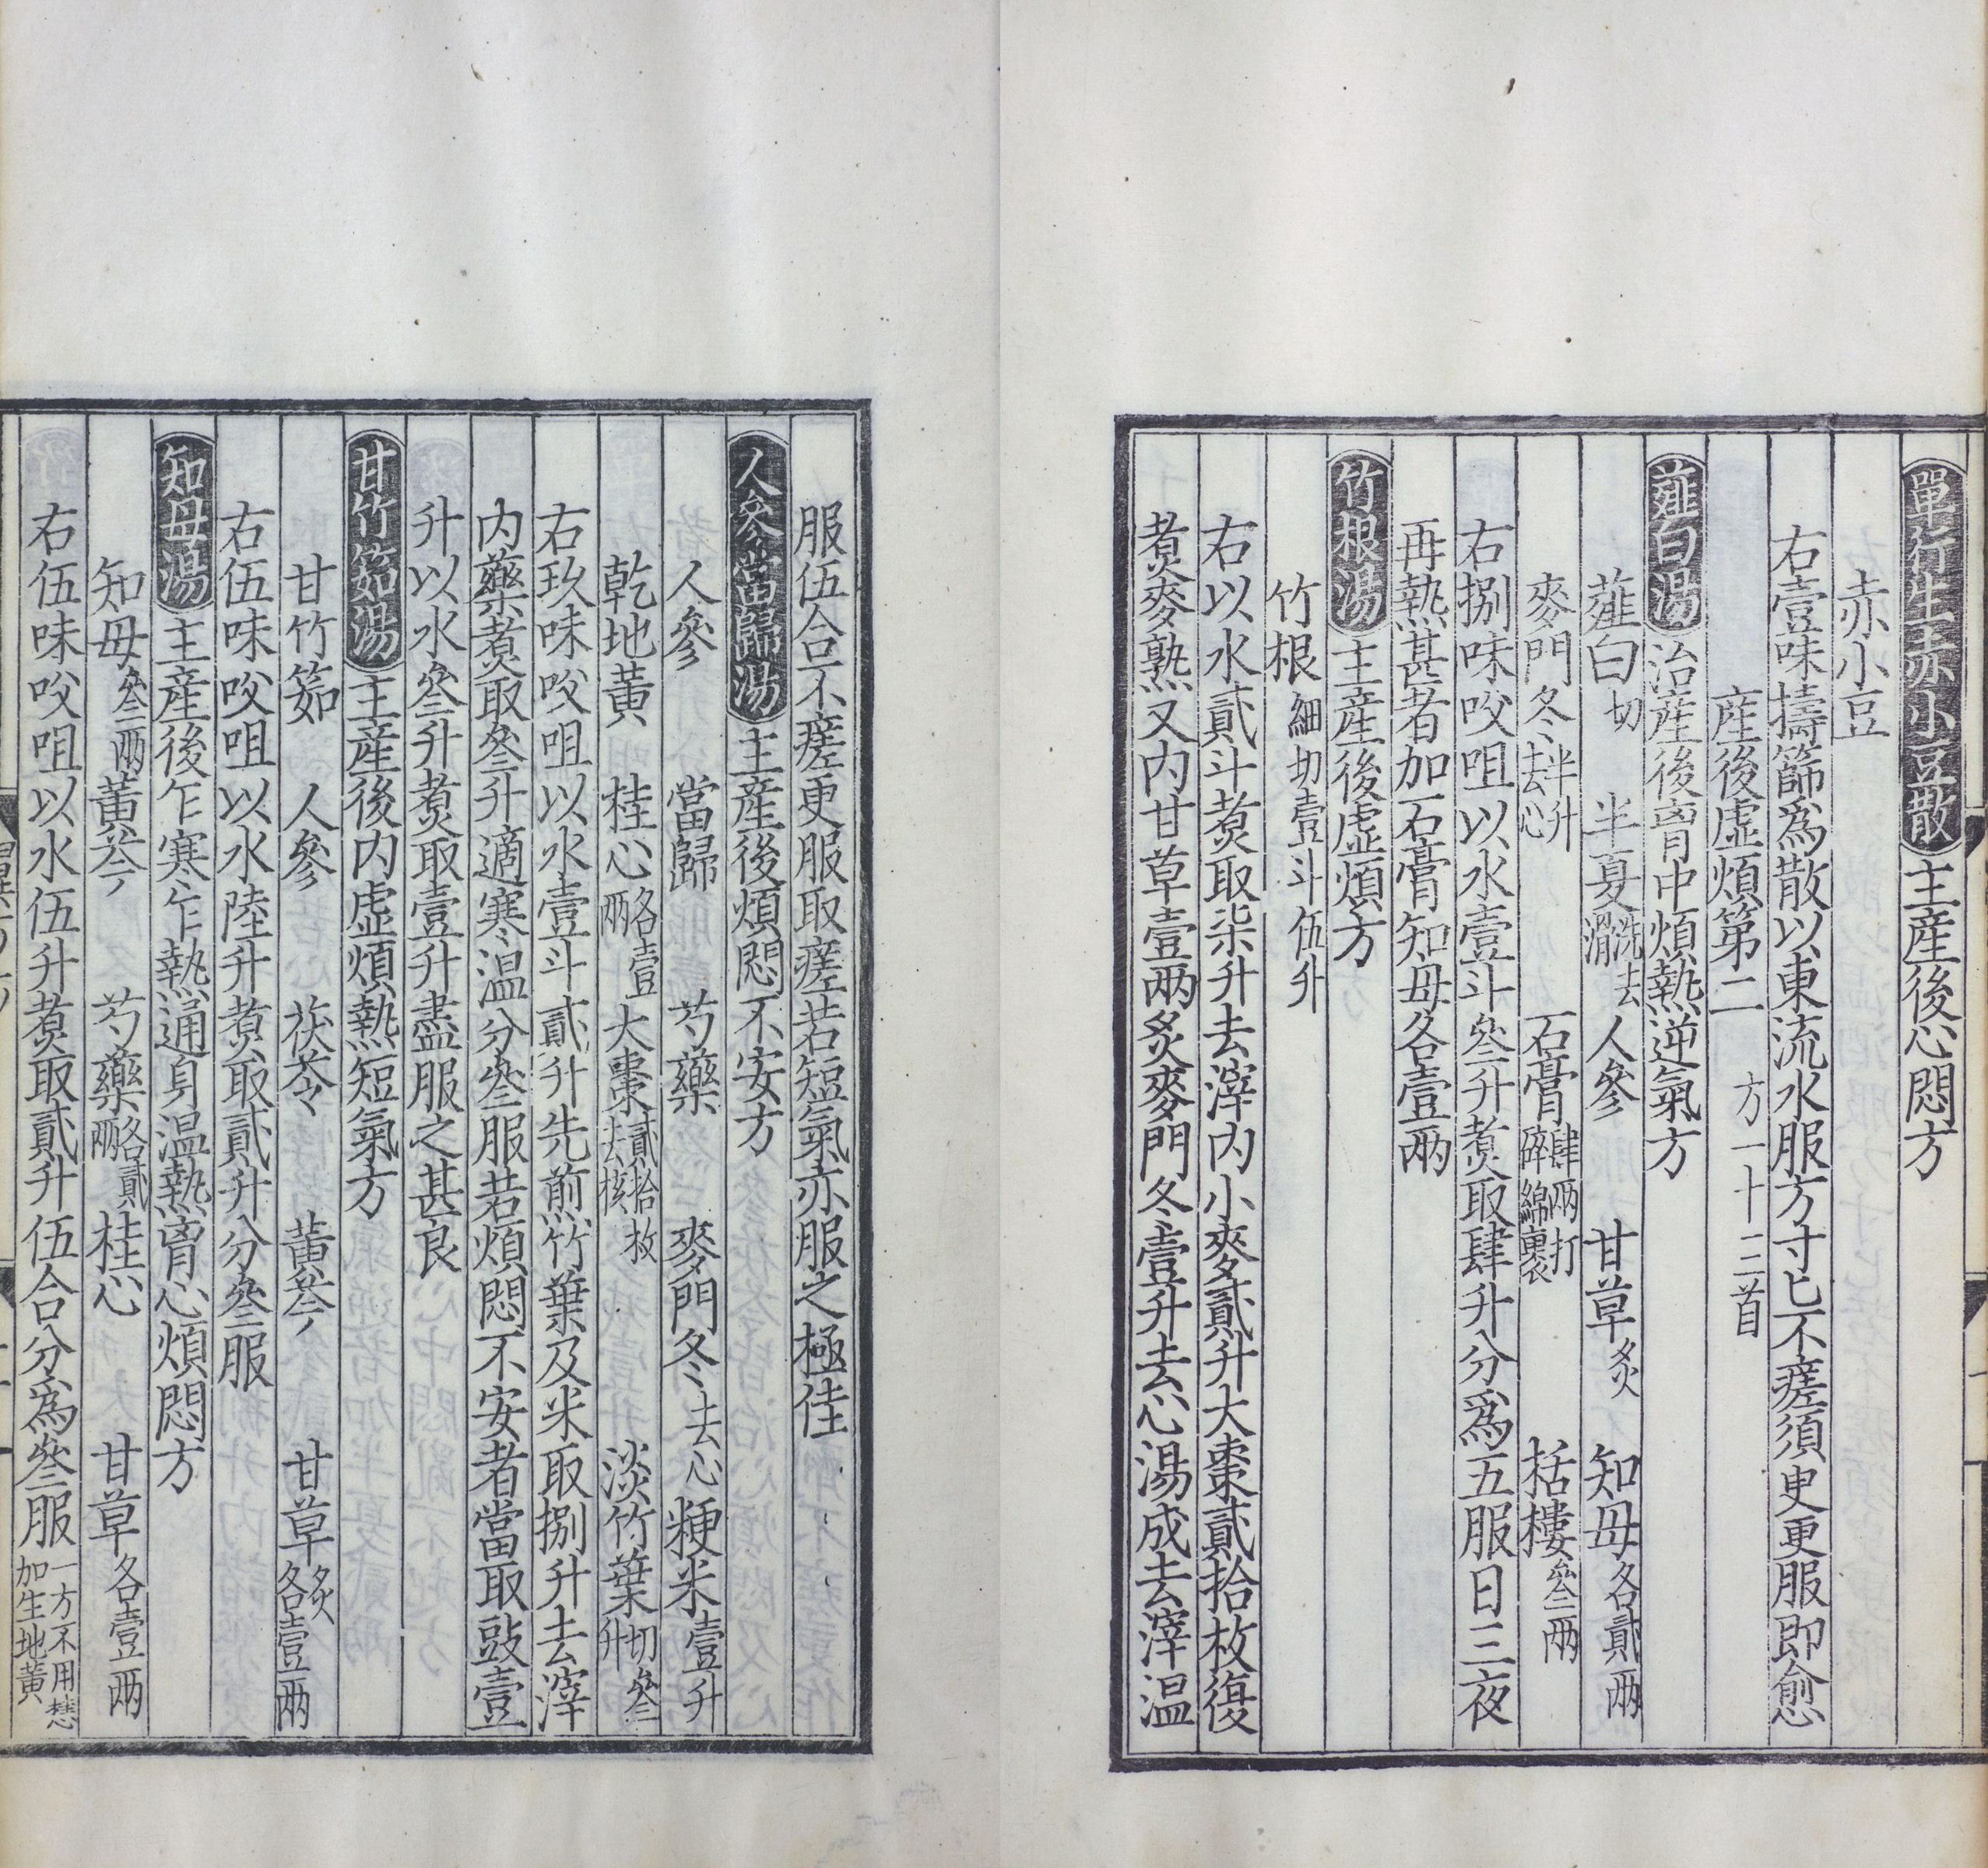 單行生赤小豆散主産後心悶方
赤小豆
右壹味擣篩爲散以東流水服方寸匕不瘥須更服即愈
産後虛煩第二 方一十三首
薤白湯治産後胷中煩熱逆氣方
薤白切 半夏洗去滑 人參 甘草炙 知母各貳兩
麥門冬半升去心 石膏肆兩打碎綿裹 栝樓叁兩
右捌味㕮咀以水壹斗叁升煑取肆升分爲五服日三夜
再熱甚者加石膏知母各壹兩
竹根湯主産後虛煩方
竹根細切壹斗伍升
右以水貳斗煑取柒升去滓内小麥貳升大棗貳拾枚復
煑麥熟又内甘草壹兩炙麥門冬壹升去心湯成去滓温
服伍合不瘥更服取瘥若短氣亦服之極佳
人參當歸湯主産後煩悶不安方
人參 當歸 芍藥 麥門冬去心 粳米壹升
乾地黃 桂心各壹兩 大棗貳拾枚去核 淡竹葉切叁升
右玖味㕮咀以水壹斗貳升先煎竹葉及米取捌升去滓
内藥煑取叁升適寒温分叁服若煩悶不安者當取豉壹
升以水叁升煑取壹升盡服之甚良
甘竹筎湯主産後内虛煩熱短氣方
甘竹筎 人參 茯苓 黃芩 甘草炙各壹兩
右伍味㕮咀以水陸升煑取貳升分叁服
知母湯主産後乍寒乍熱通身温熱胷心煩悶方
知母叁兩 黃芩 芍藥各貳兩 桂心 甘草各壹兩
右伍味㕮咀以水伍升煑取貳升伍合分爲叁服一方不用桂加生地黃